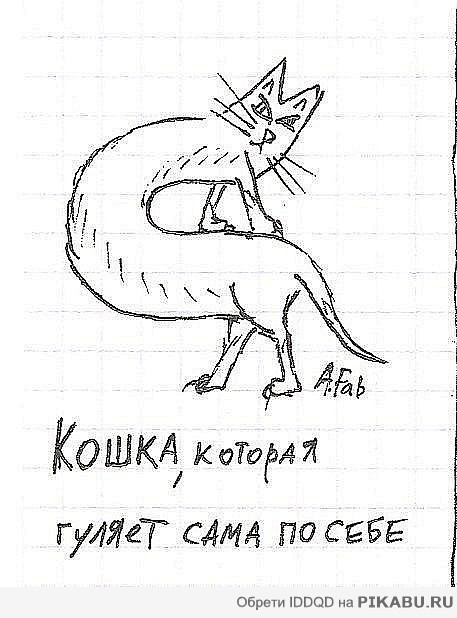 A.Fab
Кошка, которая
гуляет сама по себе
Обрети IDDQD на PIKABU.RU